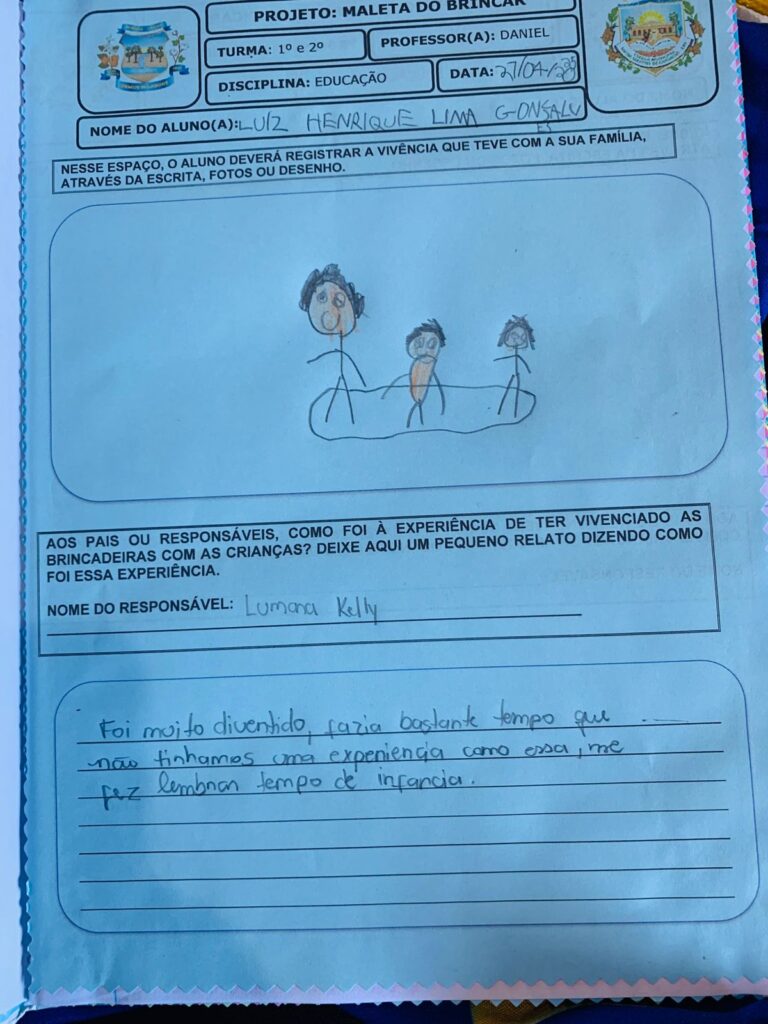 PROJETO: MALETA DO BRINCAR
TURMA: 1º e 2º
PROFESSOR(A): DANIEL
DISCIPLINA: EDUCAÇÃO
DATA: 27/04/
NOME DO ALUNO(A): LUIZ HENRIQUE LIMA GONSALV
ES
NESSE ESPAÇO, O ALUNO DEVERÁ REGISTRAR A VIVÊNCIA QUE TEVE COM A SUA FAMÍLIA,
ATRAVÉS DA ESCRITA, FOTOS OU DESENHO.
AOS PAIS OU RESPONSÁVEIS, COMO FOI À EXPERIÊNCIA DE TER VIVENCIADO AS
BRINCADEIRAS COM AS CRIANÇAS? DEIXE AQUI UM PEQUENO RELATO DIZENDO COMO
FOI ESSA EXPERIÊNCIA.
NOME DO RESPONSÁVEL: Lumara Kelly
Foi muito diventido, fazia bastante tempo que
não tinhamos uma experiencia como essa, me
fez lembrar tempo de infancia.